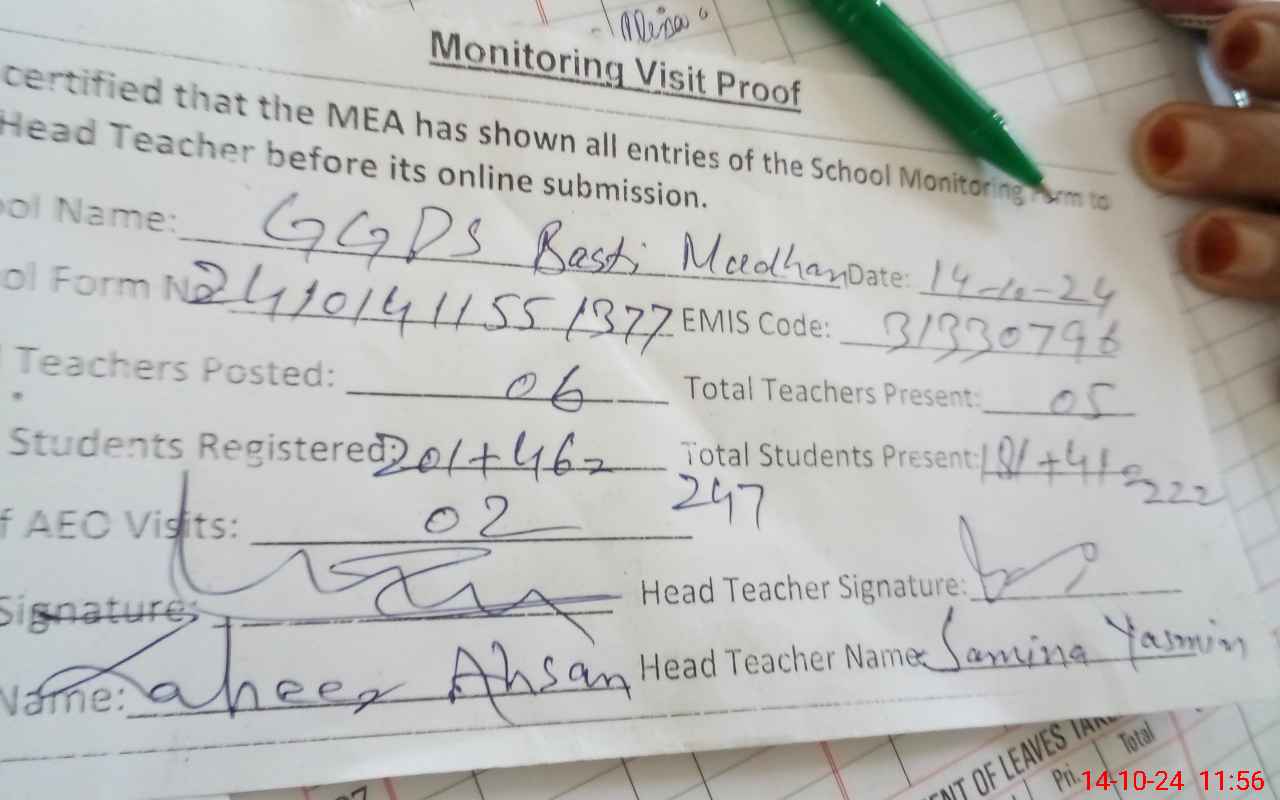 Monitoring Visit Proof
certified that the MEA has shown all entries of the School Monitoring Form to
Head Teacher before its online submission.
ool Name: GGPS Basti Muadhan Date: 14-10-24
ol Form No 24101411551377 EMIS Code: 31330796
Teachers Posted: 06 Total Teachers Present: 05
Students Registered: 201+46= 247 Total Students Present: 181+41=222
f AEO Visits: 02
Signature: Head Teacher Signature:
Name: Zaheer Ahsan Head Teacher Name: Samina Yasmin
NT OF LEAVES TAK
Pri. Total
14-10-24 11:56